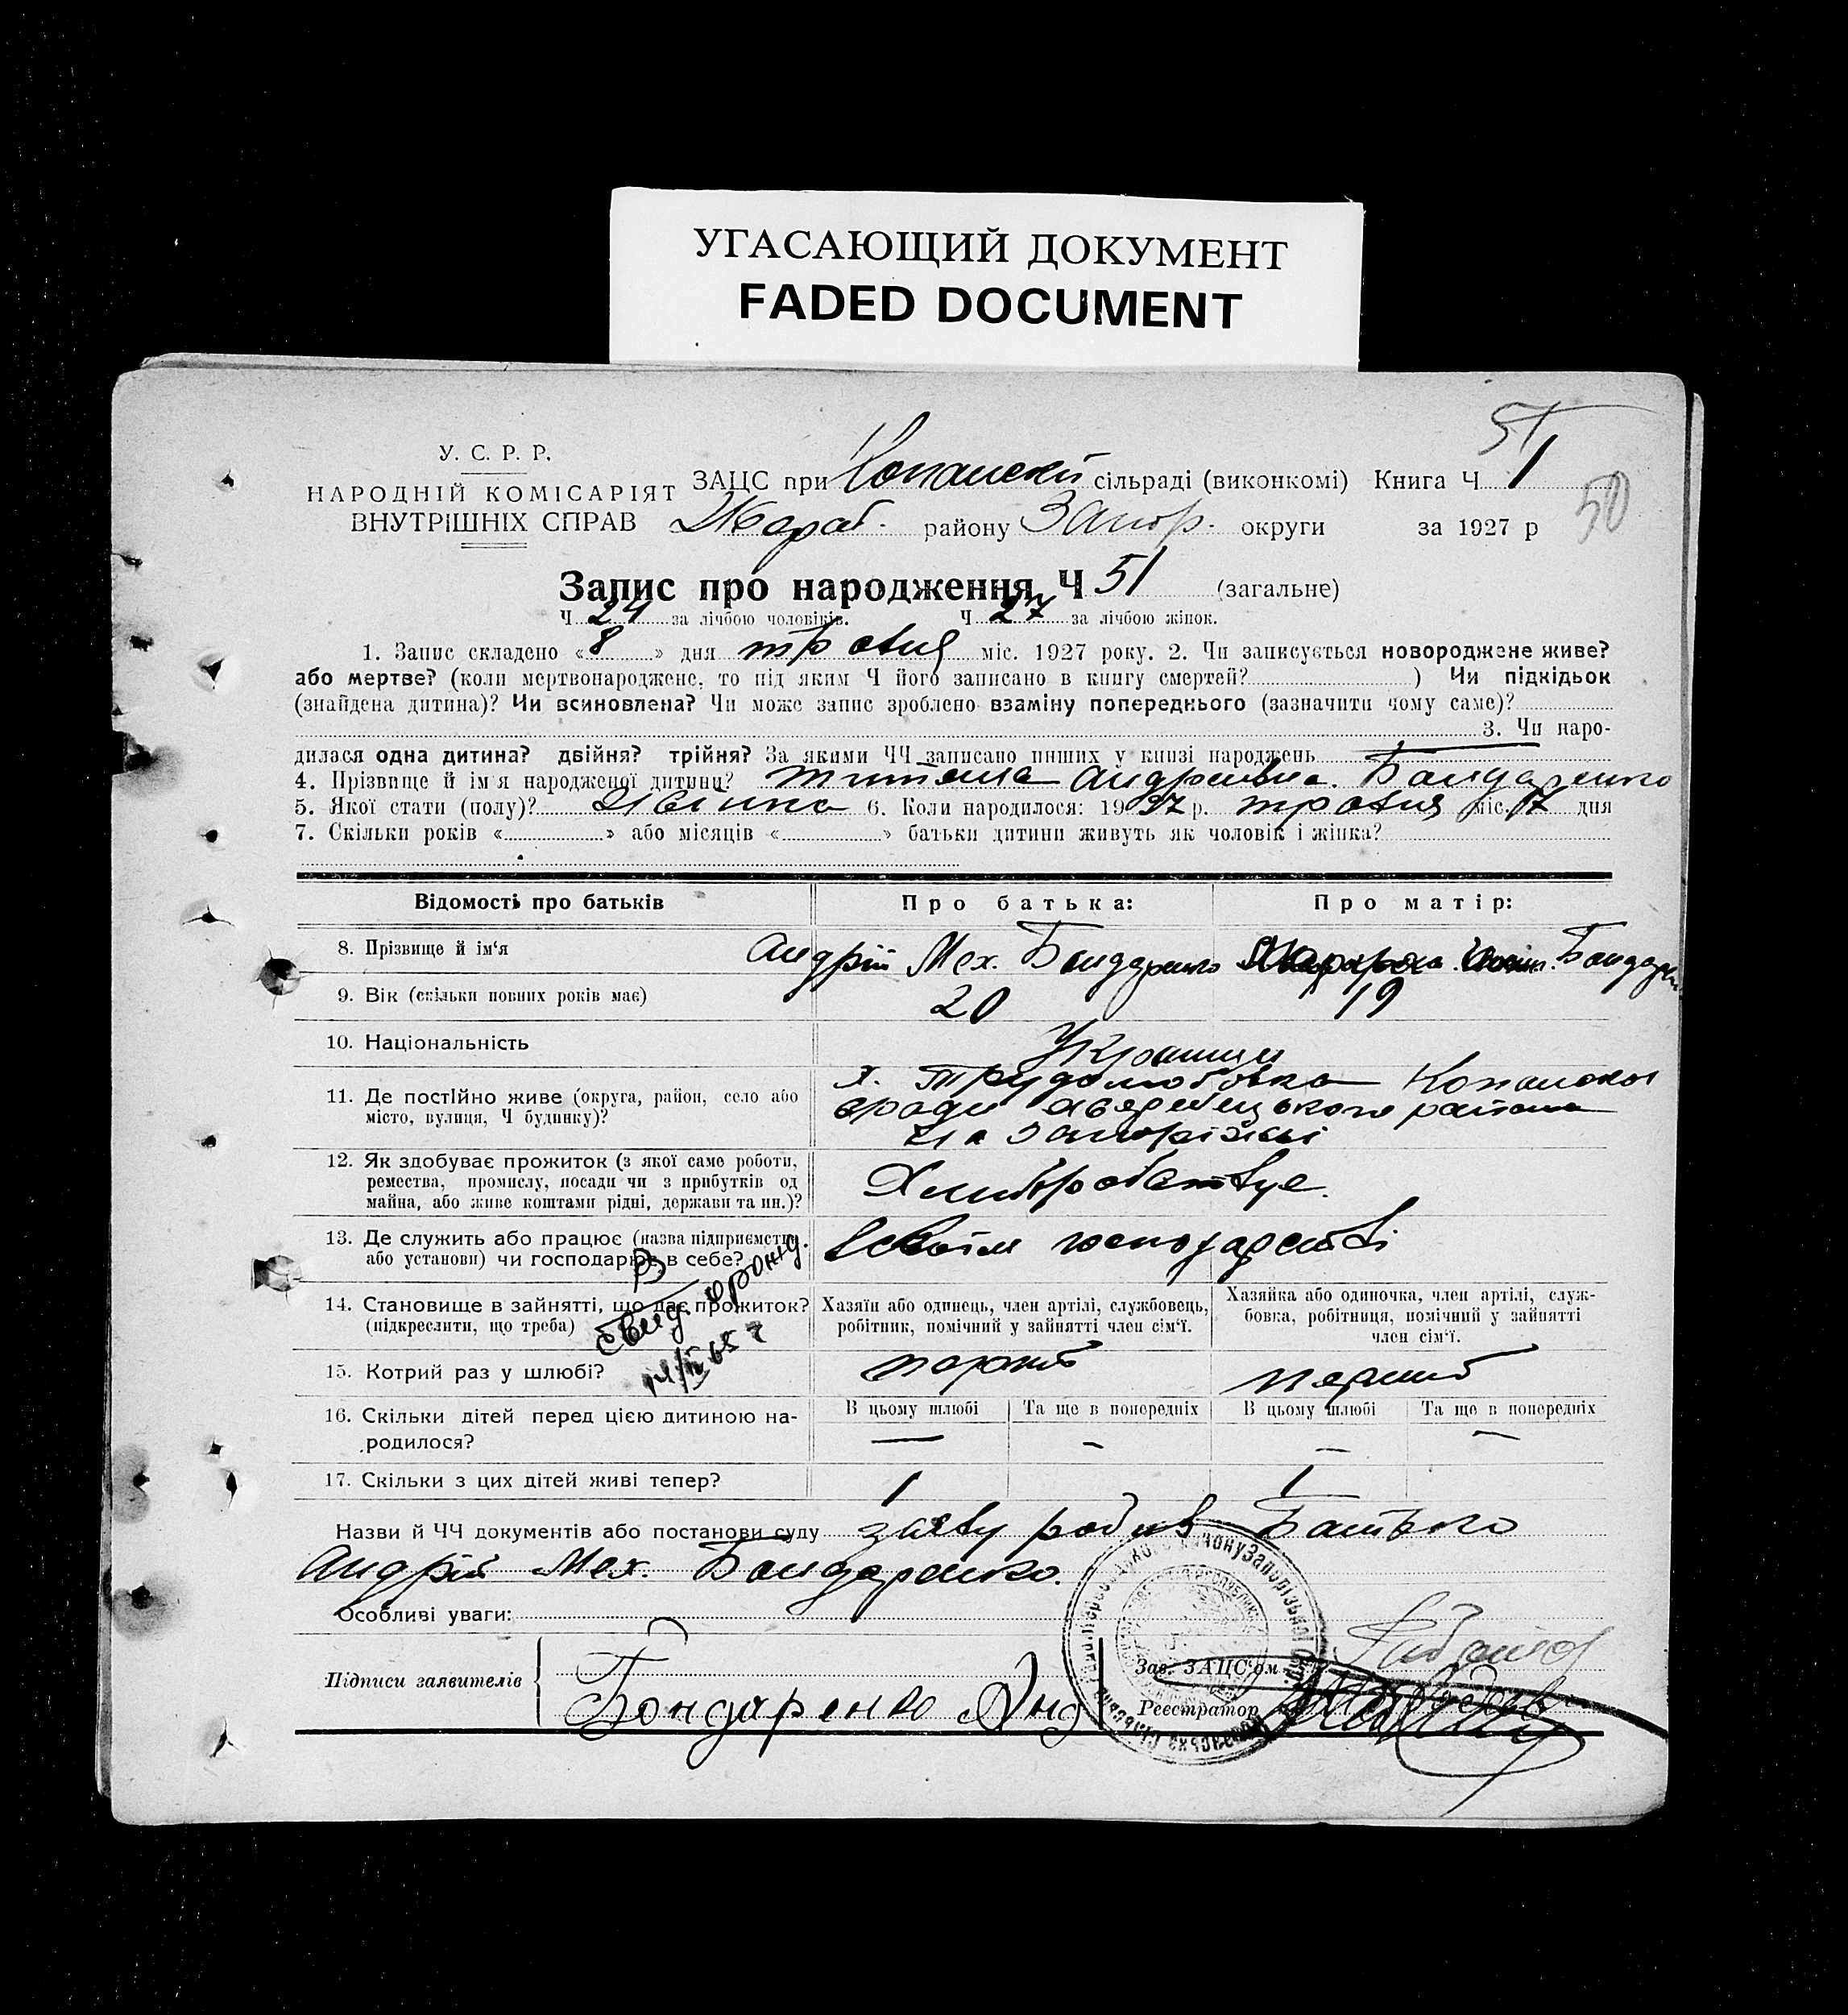 УГАСАЮЩИЙ ДОКУМЕНТ
FADED DOCUMENT
51
У. С. Р. Р.
НАРОДНІЙ КОМІСАРІЯТ
ВНУТРІШНІХ СПРАВ
ЗАЦС при Копанскій сільраді (виконкомі) Книга Ч 1
району Запор. округи за 1927 р
50
Запис про народження Ч 51 (загальне)
Ч 24 за лічбою чоловіків. Ч 27 за лічбою жінок.
1. Запис складено «8» дня травня міс. 1927 року. 2. Чи записується новороджене живе?
або мертве? (коли мертвонароджене, то під яким Ч його записано в книгу смертей? ) Чи підкідьок
(знайдена дитина)? Чи всиновлена? Чи може запис зроблено взаміну попереднього (зазначити чому саме)?
3. Чи наро-
дилася одна дитина? двійня? трійня? За якими ЧЧ записано инших у книзі народжень
4. Прізвище й ім'я народженої дитини? Андреівна Бондаренко
5. Якої стати (полу)? 6. Коли народилося: 1927 р. травня міс. 7 дня
7. Скільки років « » або місяців « » батьки дитини живуть як чоловік і жінка?
Відомості про батьків Про батька: Про матір:
8. Прізвище й ім'я Андрій Мех. Бондаренко
9. Вік (скільки повних років має) 20 19
10. Національність Українци
11. Де постійно живе (округа, район, село або
місто, вулиця, Ч будинку)?
х. Трудолюбовка Копанской
района
12. Як здобуває прожиток (з якої саме роботи,
ремества, промислу, посади чи з прибутків од
майна, або живе коштами рідні, держави та ин.)?
13. Де служить або працює (назва підприємства
або установи) чи господарює в себе?
господарстві
14. Становище в зайнятті, що дає прожиток?
(підкреслити, що треба)
Хазяїн або одинець, член артілі, службовець,
робітник, помічний у зайнятті член сім'ї.
Хазяйка або одиночка, член артілі, служ-
бовка, робітниця, помічний у зайнятті
член сім'ї.
15. Котрий раз у шлюбі? перший
16. Скільки дітей перед цією дитиною на-
родилося?
В цьому шлюбі Та ще в попередніх В цьому шлюбі Та ще в попередніх
— — — —
17. Скільки з цих дітей живі тепер? 1 1
Назви й ЧЧ документів або постанови суду заяву робив Батько
Андрій Мех. Бондаренко.
Особливі уваги:
Підписи заявителів Бондаренко Анд
Зав. ЗАЦС'ом
Реєстратор